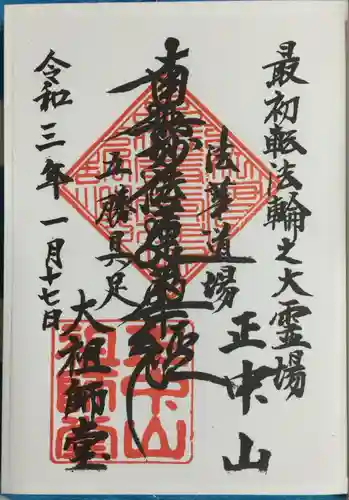 最初転法輪之大霊場
正中山
法華道場
南無妙法蓮華経
五勝具足
大祖師堂
令和三年一月十七日